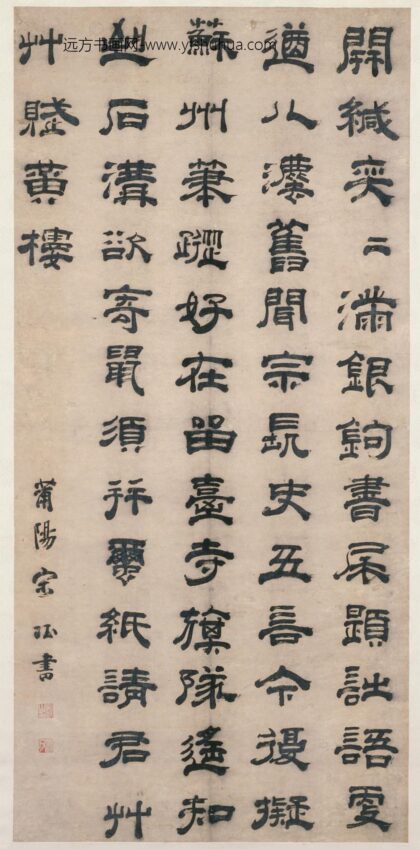 远方书画网--www.yishuhua.com
開緘奕二滿銀鉤書尾題詩語更
遒八灋舊聞宗長史五言今復擬
蘇州筆蹤好在留臺寺旗隊遙知
到石溝欲寄鼠須并蠒紙請君艸
艸賦黃樓
莆陽宋珏書